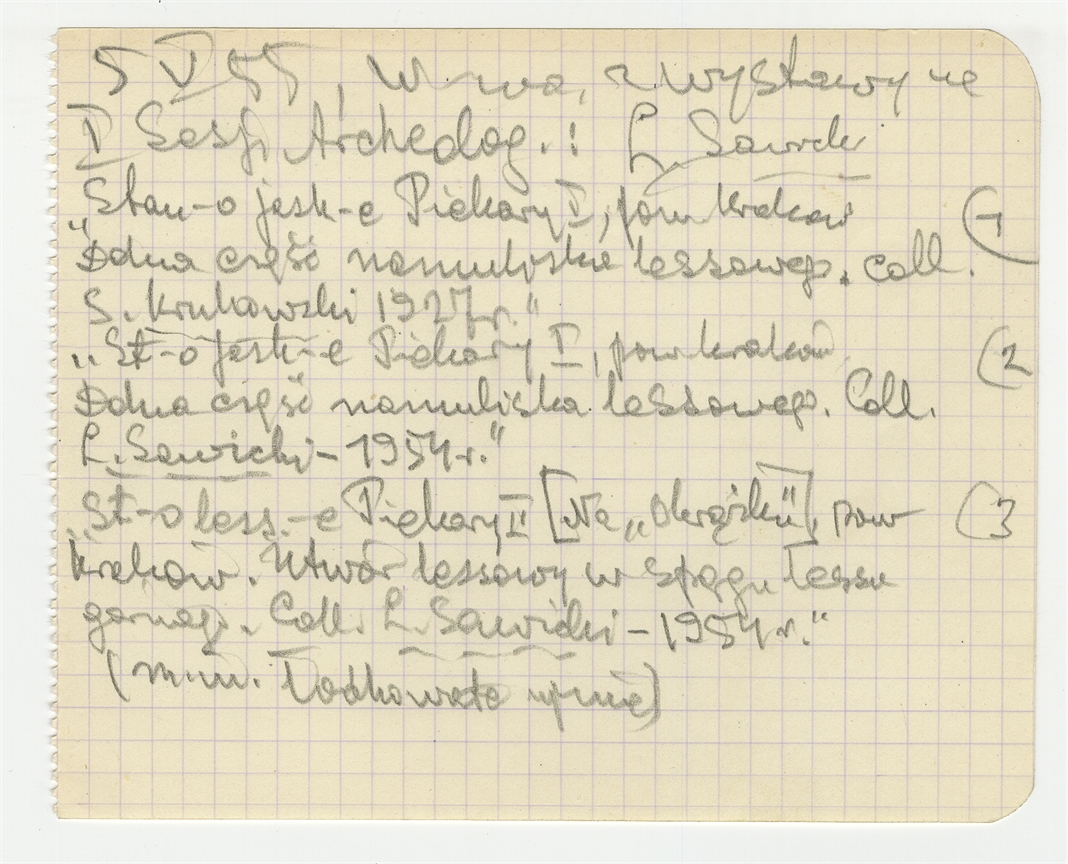 5 V 55, W-wa, z wystawy na
I Sesji Archeolog.: L. Sawicki
"Stan-o jask-e Piekary I, pow Kraków (1
Dolna część namuliska lessowego. Coll.
S. Krukowski 1927 r."
"St-o jask-e Piekary I, pow Kraków (2
Dolna część namuliska lessowego. Coll.
L. Sawicki – 1954 r."
"St-o less.-e Piekary II [Na „Okrążku"], pow (3
Kraków. Utwór lessowy w spągu lessu
górnego. Coll. L. Sawicki – 1954 r."
(m.in.